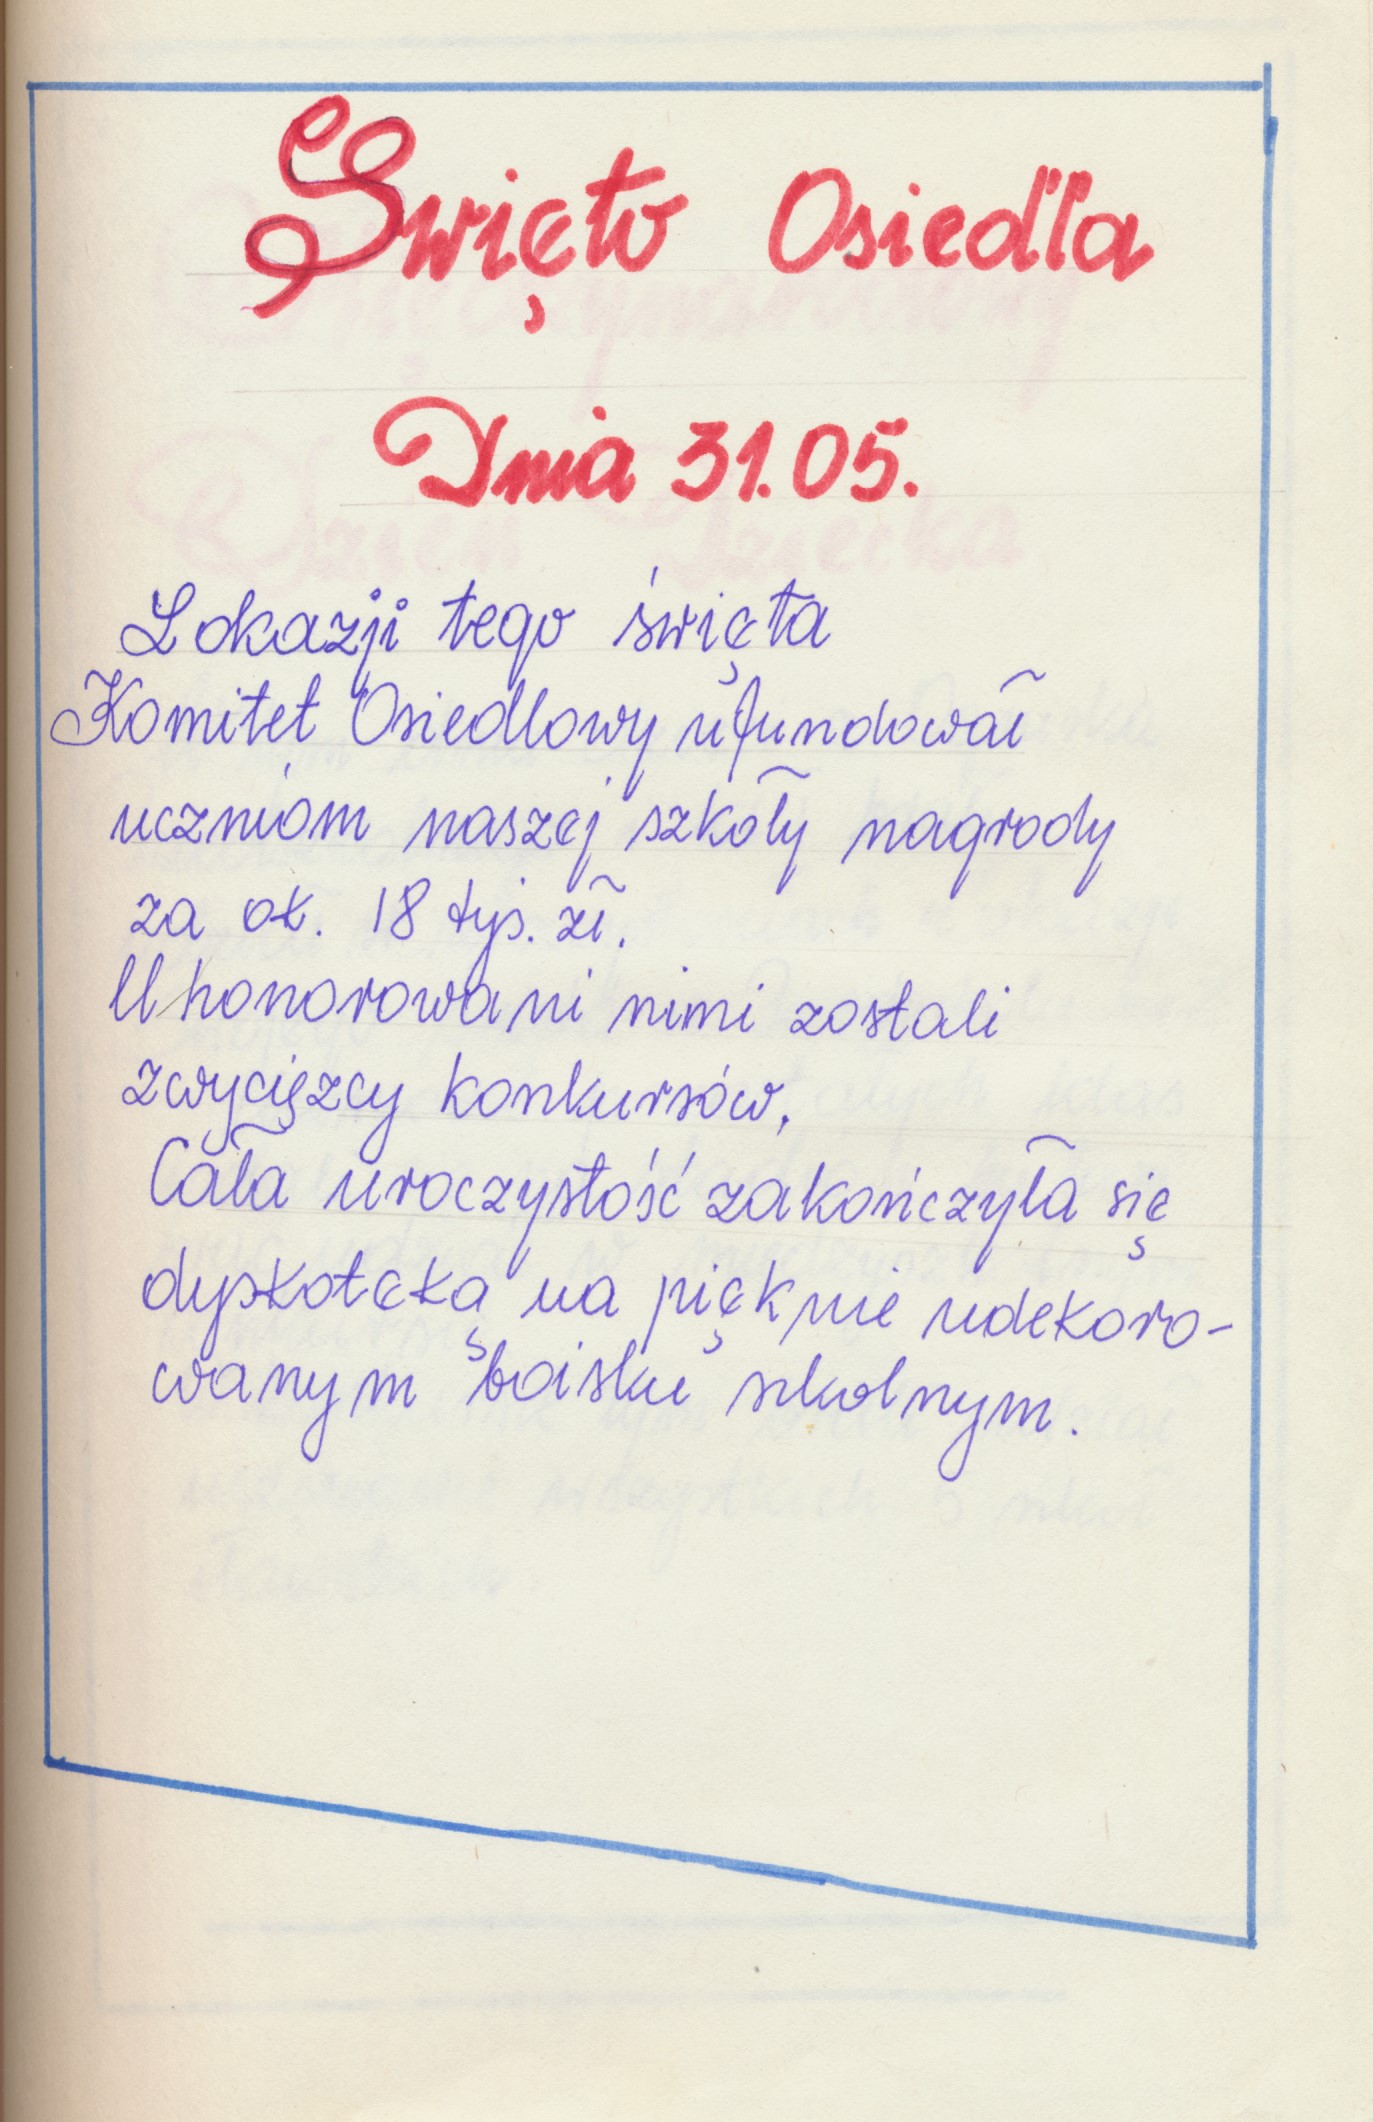 Święto Osiedla
Dnia 31.05.
Z okazji tego święta
Komitet Osiedlowy ufundował
uczniom naszej szkoły nagrody
za ok. 18 tys. zł.
Uhonorowani nimi zostali
zwycięzcy konkursów.
Cała uroczystość zakończyła się
dyskoteką na pięknie udekoro-
wanym boisku szkolnym.